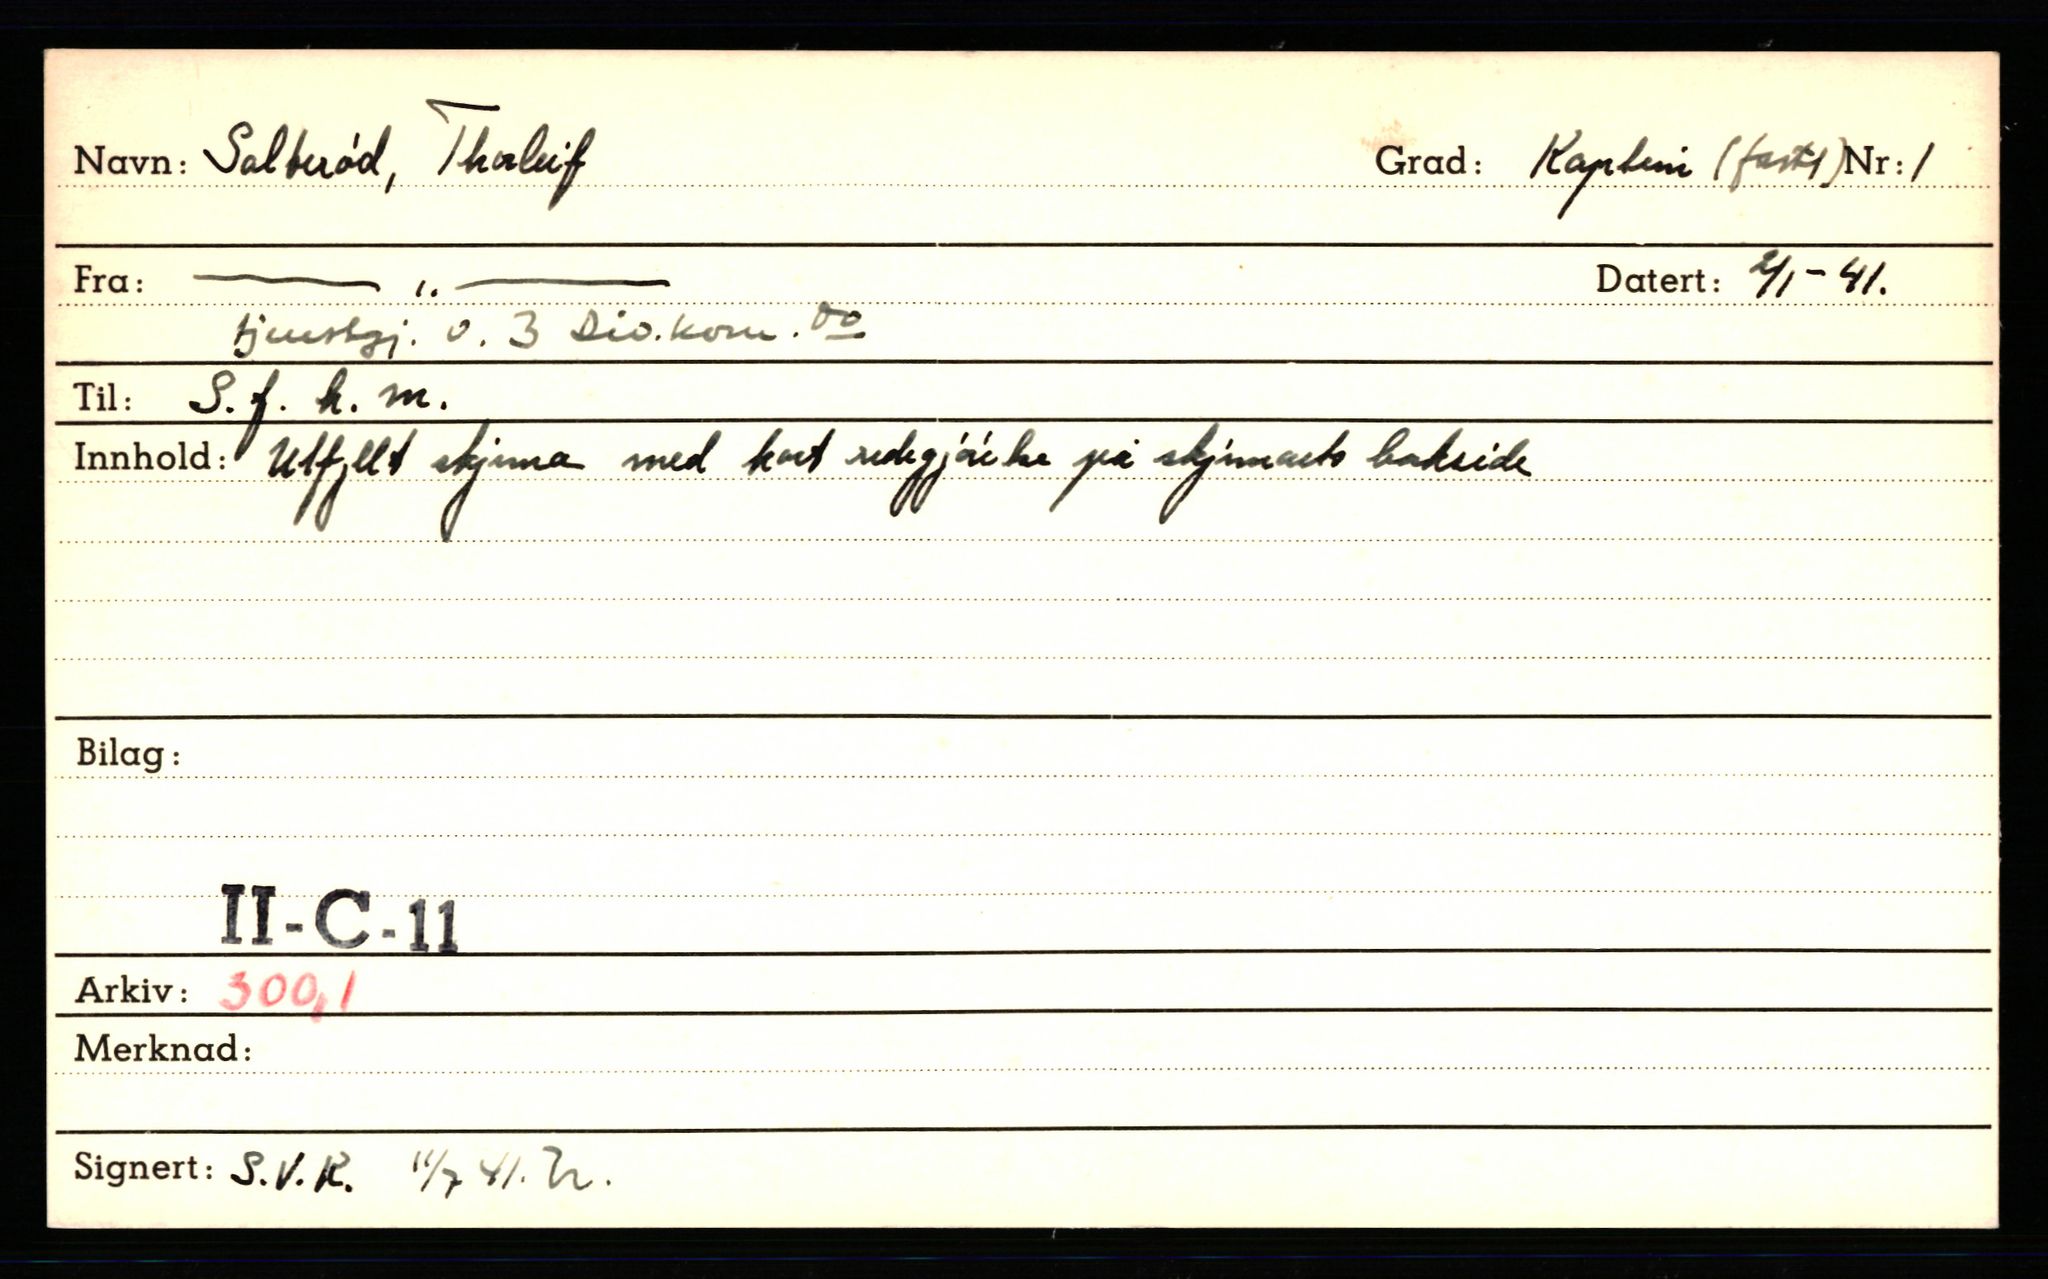 Navn: Salterød, Thorleif Grad: Kaptein (fast) Nr: 1
Fra: — " — Datert: 2/1-41.
tjenestgj. v. 3 Div.kom.do
Til: S. f. h. m.
Innhold: Utfyllt skjema med kort redegjørelse på skjemaets bakside
Bilag:
II-C-11
Arkiv: 300,1
Merknad:
Signert: S.V.R. 11/7 41.